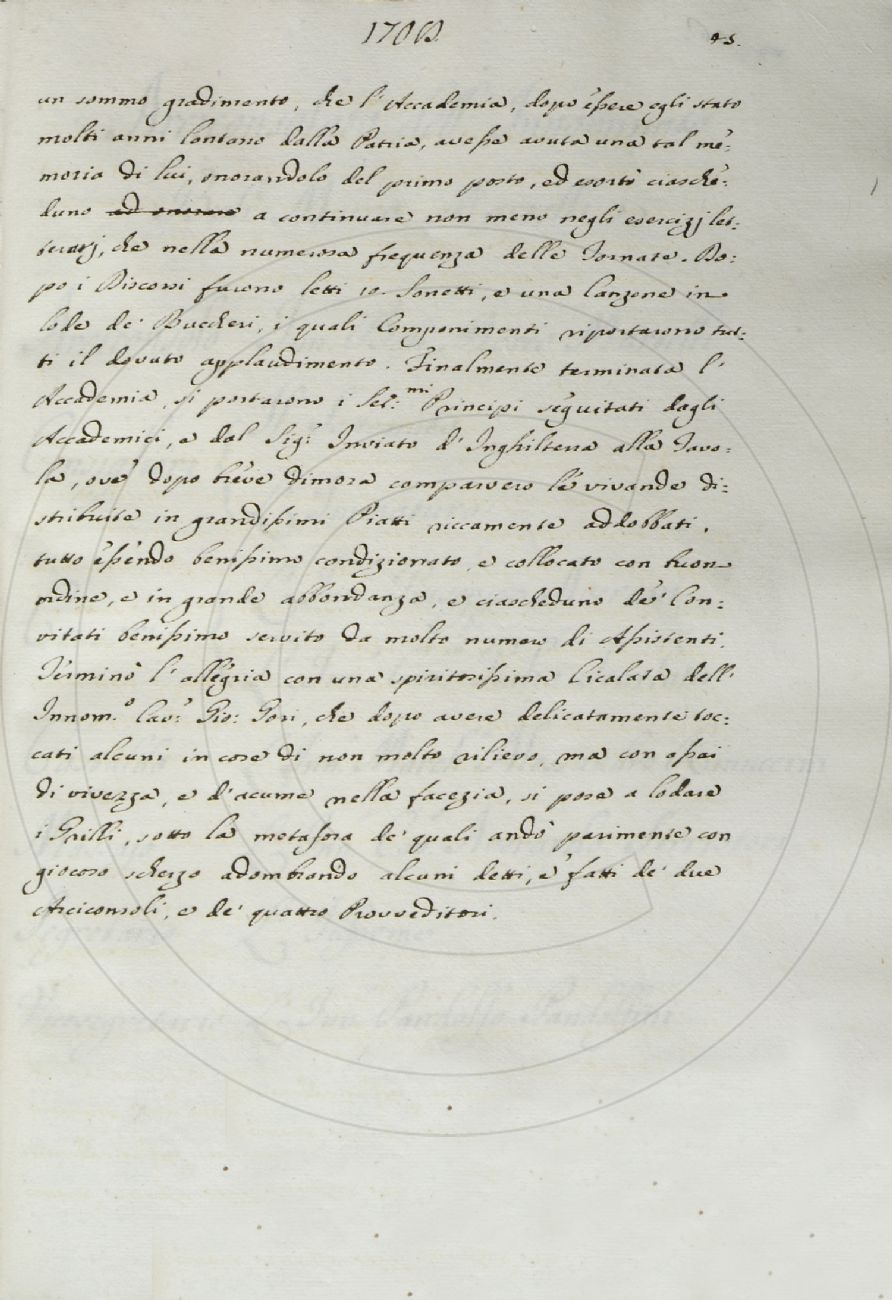 1706. 45.
un sommo gradimento, che l'Accademia, dopo essere egli stato
molti anni lontano dalla Patria, avesse avuta una tal me=
moria di lui, onorandolo del primo posto, ed esortò ciasche=
duno ad onorare a continuare non meno negli esercizj let=
terarj, che nella numerosa frequenza delle Tornate. Do=
po i Discorsi furono letti 10. Sonetti, e una Canzone in
lode de' Buccheri, i quali Componimenti riportarono tut=
ti il dovuto applaudimento. Finalmente terminata l'
Accademia, si portarono i Ser:mi Principi seguitati dagli
Accademici, e dal Sig.r Inviato d'Inghilterra alla Tavo=
la, ove dopo breve dimora comparvero le vivande di=
stribuite in grandissimi Piatti riccamente addobbati,
tutto essendo benissimo condizionato, e collocato con buon
ordine, e in grande abbondanza, e ciascheduno de' Con=
vitati benissimo servito da molto numero di Assistenti.
Terminò l'allegria con una spiritosissima Cicalata dell'
Innom.o Cav.r Gio: Gori, che dopo avere delicatamente toc=
cati alcuni in cose di non molto rilievo, ma con assai
di vivezza, e d'acume nella facezia, si pose a lodare
i Grilli, sotto la metafora de' quali andò parimente con
giocoso scherzo adombrando alcuni detti, e fatti de' due
Arciconsoli, e de' quattro Provveditori.